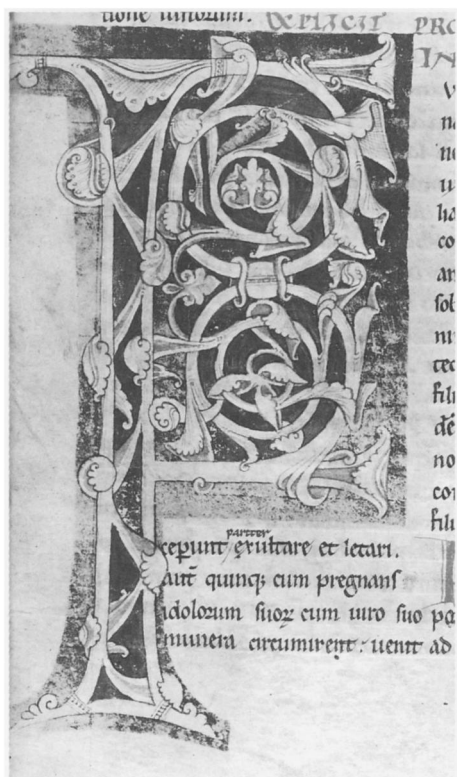 tione iustorum. EXPLICIT PRO
IN
V
na
ne
u
ha
co
an
sob
ni
tec
fili
dē
no
con
fili
pariter
ceperunt exultare et letari.
autē quinq; cum pregnans
idolorum suoꝝ cum uiro suo pa
munera circumirent: uenit ad